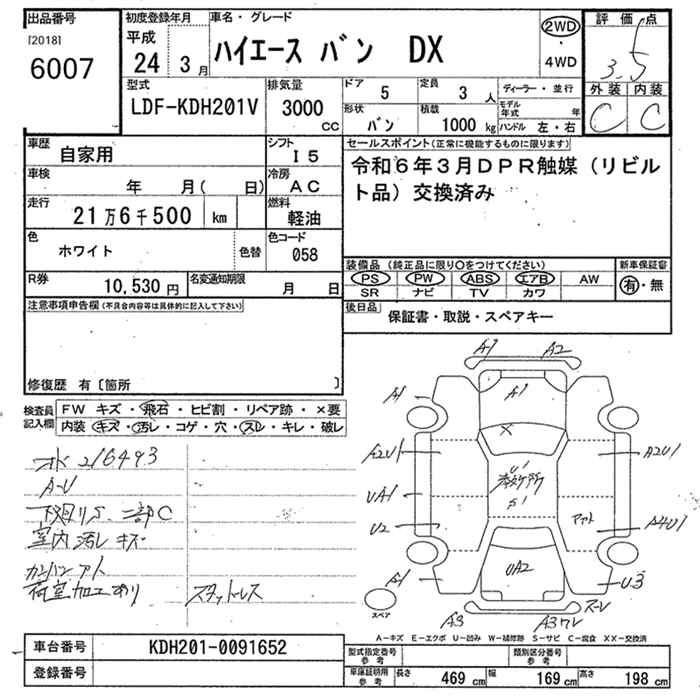 出品番号
[2018]
6007
初度登録年月
平成
24 3月
車名・グレード
ハイエース バン DX
2WD
・
4WD
評価点
3.5
外装 内装
C C
型式
LDF-KDH201V
排気量
3000 cc
ドア 5
定員 3 人
形状 バン
積載 1000 kg
ディーラー・並行
モデル年式 年
ハンドル 左・右
車歴 自家用
シフト I5
車検 年 月( 日)
冷房 AC
走行 21万6千500 km
燃料 軽油
色 ホワイト 色替
色コード 058
R券 10,530 円
名変通知期限 月 日
セールスポイント(正常に機能するものに限ります)
令和6年3月DPR触媒(リビル
ト品)交換済み
装備品(純正品に限り○をつけてください)
PS PW ABS エアB AW
SR ナビ TV カワ
新車保証書
有・無
後日品 保証書・取説・スペアキー
注意事項申告欄(不具合内容等は具体的に記入して下さい)
修復歴 有〔箇所 〕
検査員記入欄
FW キズ・飛石・ヒビ割・リペア跡・×要
内装・キズ・汚レ・コゲ・穴・スレ・キレ・破レ
オド 216493
A-U
下廻りS、一部C
室内汚レ キズ
荷室加工あり
スタットレス
A1 A2
A1
A1
×
A2U1
A2U1
U1
S1
UA1
U2
A4U1
UA2
A1
U3
A3
スペア
A-キズ E-エクボ U-凹み W-補修跡 S-サビ C-腐食 XX-交換済
車台番号 KDH201-0091652
登録番号
型式指定番号 参考
類別区分番号 参考
車庫証明用 参考
長さ 469 cm
幅 169 cm
高さ 198 cm